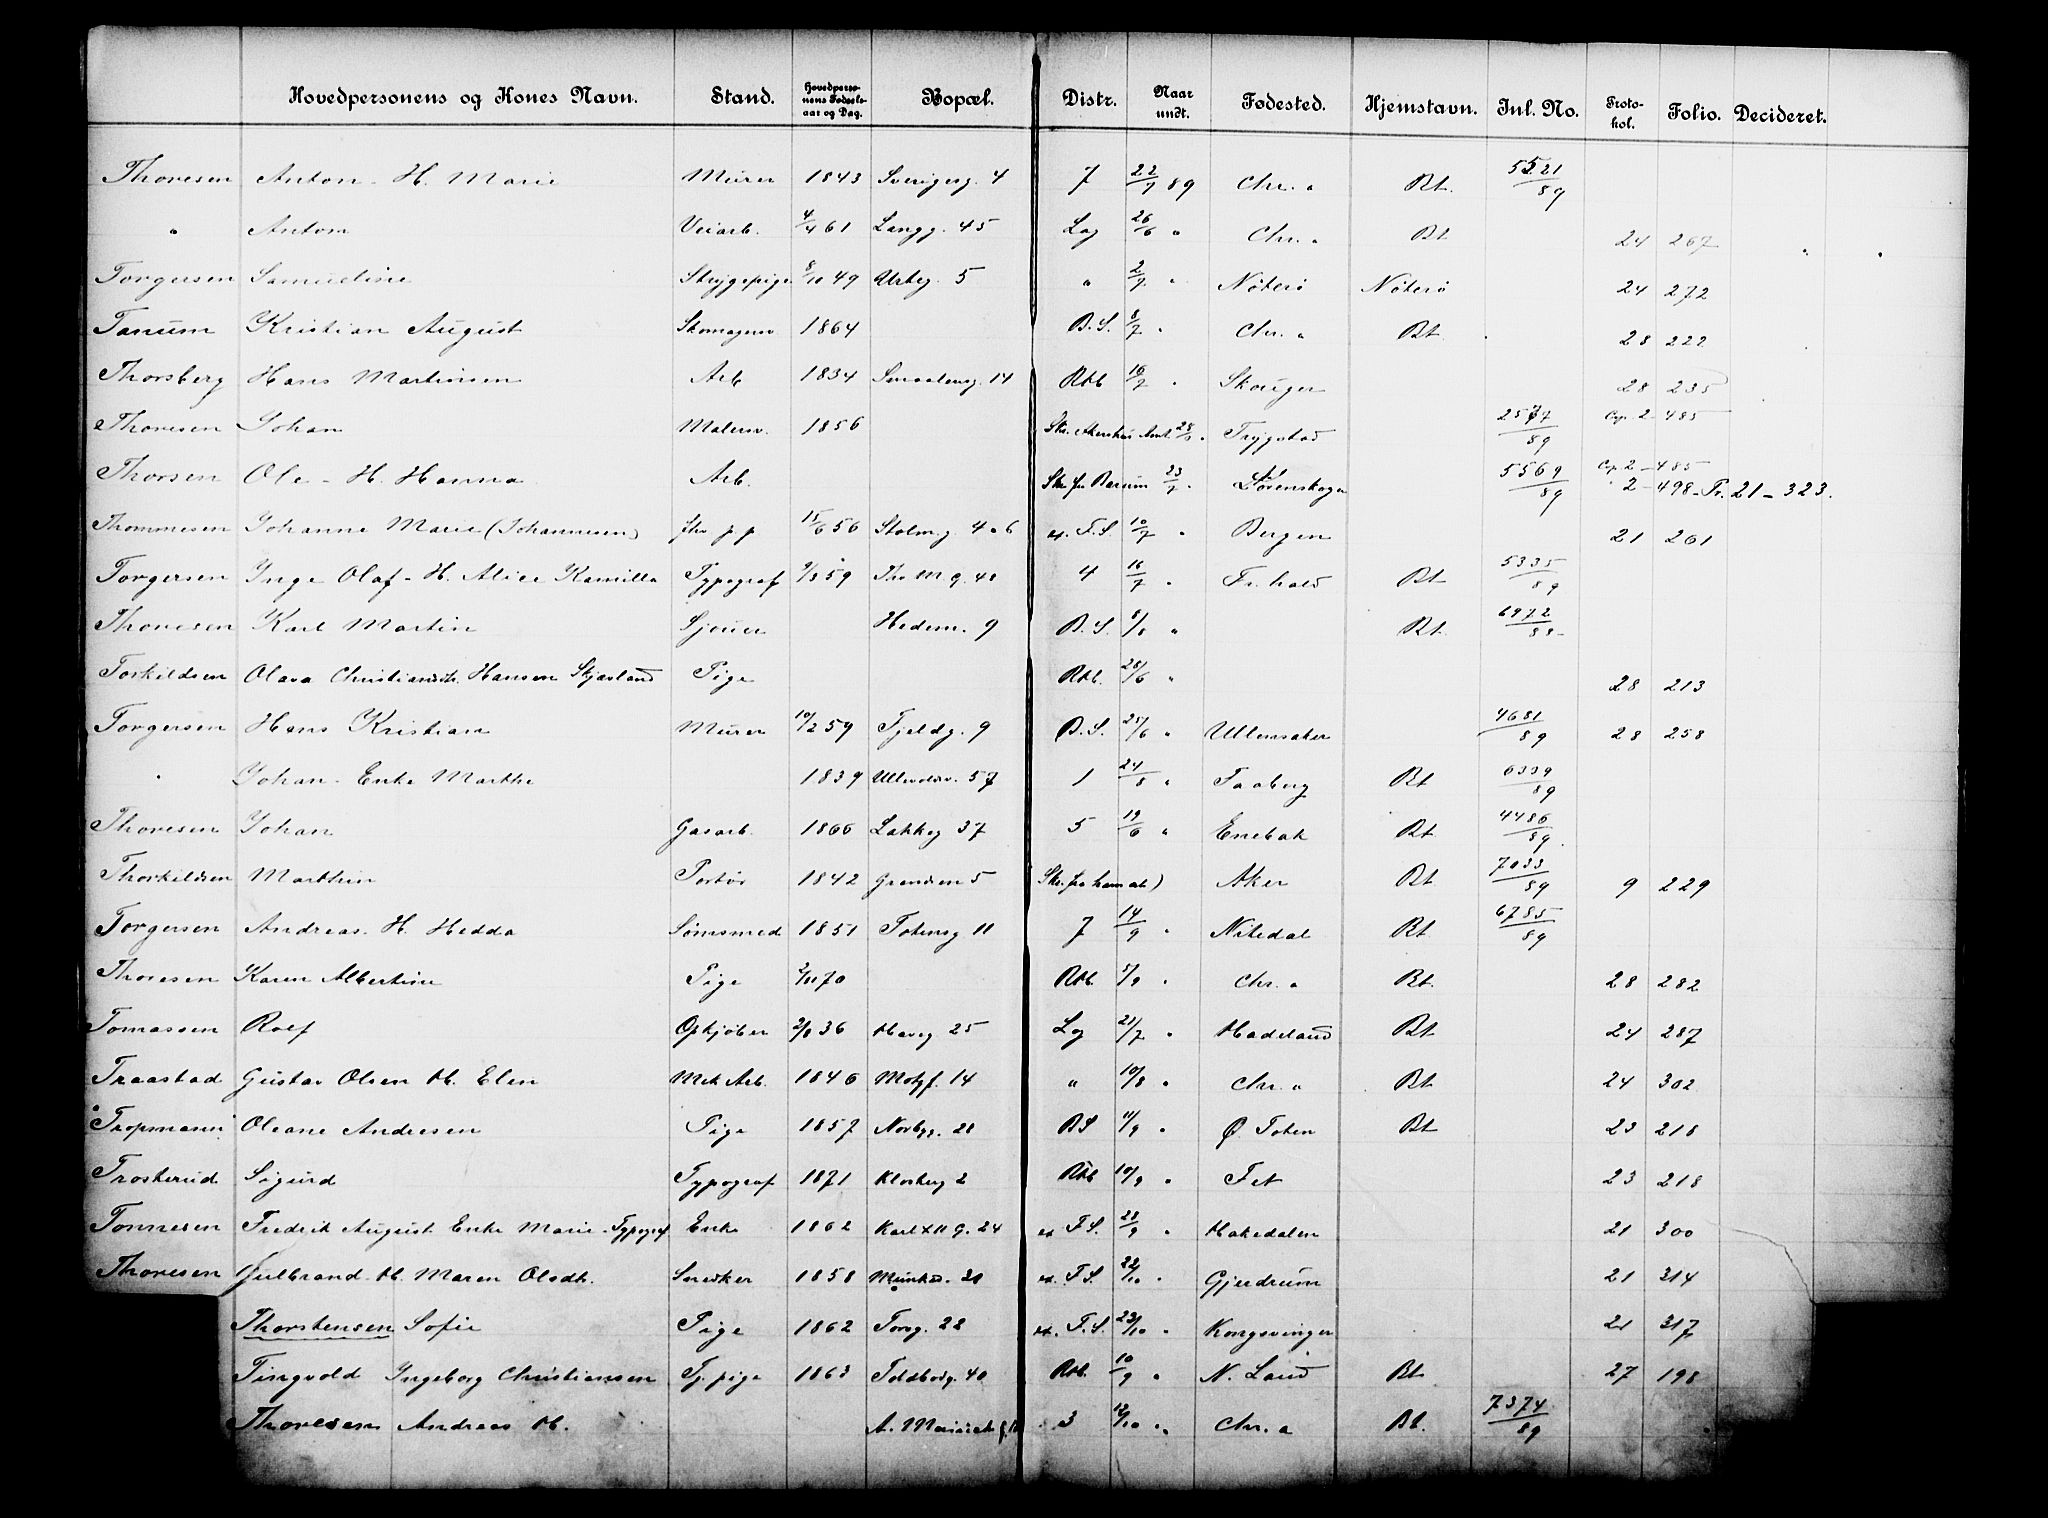 Hovedpersonens og Kones Navn. Stand. Hovedperso-nens Fødsels-aar og Dag. Bopæl. Distr. Naar undt. Fødested. Hjemstavn. Jnl. No. Proto-kol. Folio. Decideret.
Thoresen Anton - H. Marie Murer 1843 Sverigesg. 4 7 22/7 89 Chr.a Bt. 5521/89
" Anton Veiarb. 4/4 61 Langg. 45 Lag 26/6 " Chr.a Bt 24 267 " "
Torgersen Samueline Strygepige 8/10 49 Urteg. 5 " 2/7 " Nöterö Nöterö 24 272
Tanum Kristian August Skomagersv 1864 B.S. 8/7 " Chr.a Bt. 28 222
Thorsberg Hans Martinsen Arb 1834 Smaalensg. 14 Rtb 16/7 " Skouger 28 235
Thoresen Johan Malersv. 1856 Skr. Akershus Amt " Trygstad 2577/89 Cop. 2 - 485
Thorsen Ole - H. Hanna Arb. Skr. fra Bærum 23/7 " Lörenskogen 5569/89 Cop. 2 - 485
2 - 498 - Pr. 21 - 323.
Thommesen Johanne Marie (Johannesen) 15/6 56 Stolmg. 4 o 6 F.S. 10/7 " Bergen 21 261
Torgersen Inge Olaf - H. Alice Kamilla Typograf 9/3 59 Ths M g. 40 4 16/7 " Fr.hald Bt 5335/89
Thoresen Karl Martin Sjouer Hedem. 9 B.S. 8/8 " Bt. 6972/88
Torkildsen Olava Christiansdtr. Hansen Skjavland Pige Rtb. 28/6 " 28 213
Torgersen Hans Kristian Murer 10/2 59 Fjeldg. 9 B.S. 25/6 " Ullensaker 4681/89 28 258
" Johan - Enke Marthe 1839 Ullevolsv. 57 1 24/8 " Faaberg Bt 6339/89
Thoresen Johan Gasarb. 1866 Lakkeg 37 5 19/6 " Enebak Bt 4486/89
Thorkildsen Marthin Portör 1842 Grændsen 5 Skr. fra ham Aker Bt 7033/89 9 229
Torgersen Andreas. H. Hedda Sömsmed 1851 Totensg 11 7 14/9 " Nitedal Bt. 6785/89
Thoresen Karen Albertine Pige 2/11 70 Rtb. 5/9 " Chr.a Bt. 28 282
Tomassen Rolf Opkjöber 2/8 36 Haveg 25 Lg 21/7 " Hadeland Bt 24 287
Traastad Gustav Olsen H. Elen Mek Arb. 1846 Motzf. 14 " 10/8 " Chr.a Bt 24 302
Tropmann Oleane Andresen Pige 1857 Norbyg. 28 BS 11/9 " Ø. Toten Bt 23 218
Trosterud Sigurd Typograf 1871 Klosterg 2 Rtb 10/9 " Fet 23 218
Tonnesen Fredrik August Enke Marie - Typograf Enke 1862 Karl XII G. 24 F.S. 28/9 " Hakedalen 21 300
Thoresen Gulbrand. H. Maren Olsdtr. Snedker 1858 Munked. 20 F.S. 22/10 " Gjerdrum 21 314
Thorstensen Sofie Pige 1862 Torvg. 22 F.S. 23/10 " Kongsvinger 21 317
Tingvold Ingeborg Christiansen Tj. pige 1863 Toldbodg. 40 Rtb. 10/9 " N. Land Bt 27 198
Thoresen Andreas H. 3 12/10 " Chr.a Bt. 7374/89